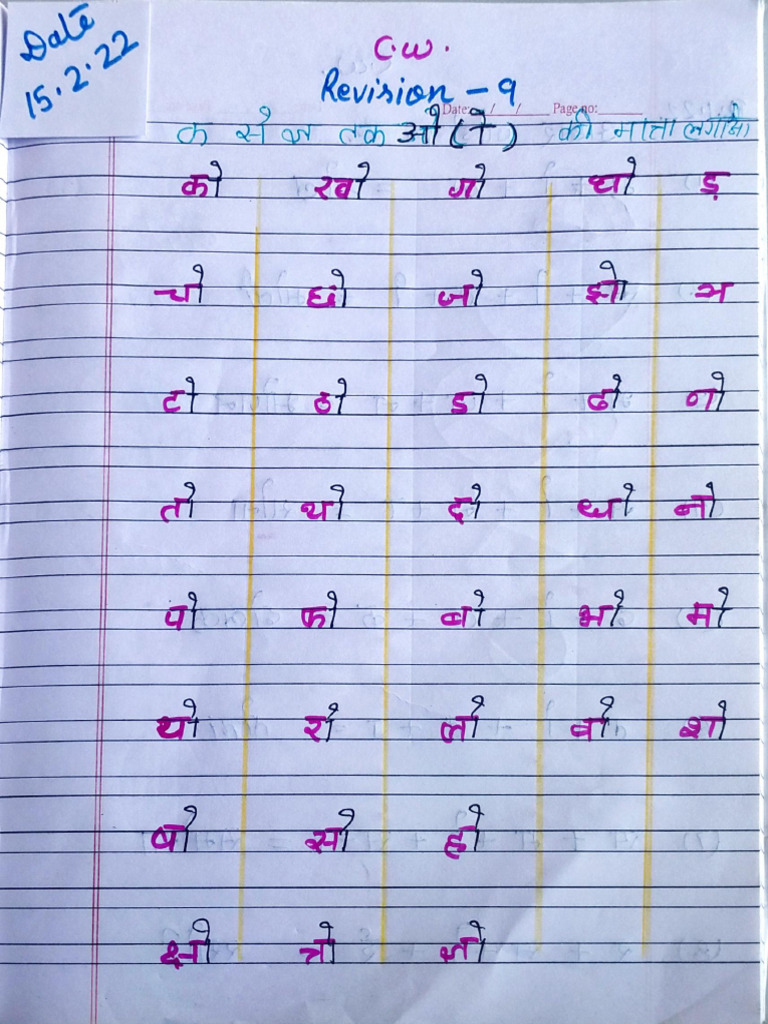 Date
15.2.22
C.W.
Revision - 9
Date: / / Page no:
क से ज्ञ तक ओ (ो) की मात्रा लगाओ
को खो गो घो ड़
चो छो जो झो ञ
टो ठो डो ढो णो
तो थो दो धो नो
पो फो बो भो मो
यो रो लो वो शो
षो सो हो
क्षो त्रो ज्ञो